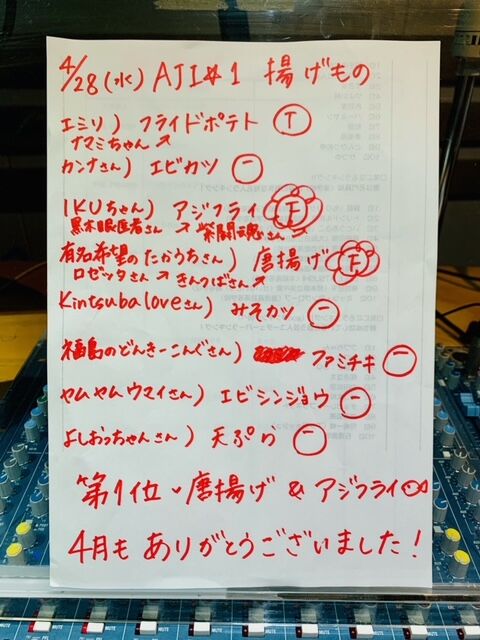 4/28(水) AJI#1 揚げもの
エミリ) フライドポテト T
ナマミちゃん↗
カンナさん) エビカツ 一
IKUちゃん) アジフライ 正
黒木眼医者さん↗ 紫闘魂さん↗
有名希望のたかうちさん) 唐揚げ 正
ロゼッタさん↗ きんつばさん↗
Kintsubaloveさん) みそカツ 一
福島のどんきーこんぐさん) ファミチキ 一
ヤムヤムウマイさん) エビシンジョウ 一
よしおっちゃんさん) 天ぷら 一
第1位・唐揚げ & アジフライ
4月も ありがとうございました!